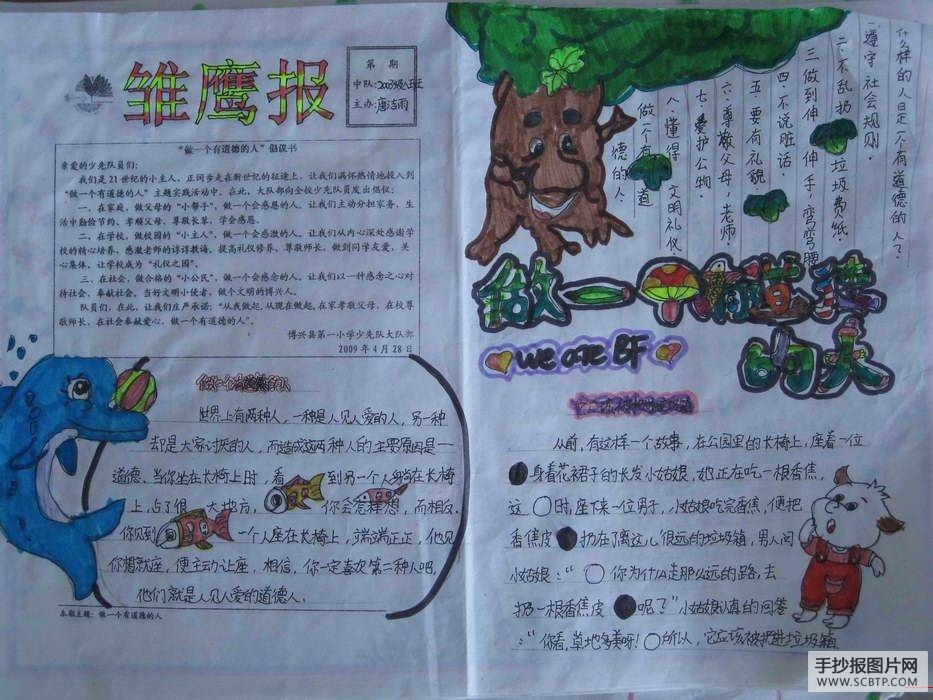 雏鹰报
第 期
中队:2003级八班
主办:唐洁雨
“做一个有道德的人”倡议书
亲爱的少先队员们:
我们是21世纪的小主人,正阔步走在新世纪的征途上,让我们满怀热情地投入到
“做一个有道德的人”主题实践活动中。在此,大队部向全校少先队员发出倡议:
一、在家庭,做父母的“小帮手”,做一个会感恩的人。让我们主动分担家务、生
活中勤俭节约、孝顺父母、尊敬长辈,学会感恩。
二、在学校,做校园的“小主人”,做一个会感激的人。让我们从内心深处感谢学
校的精心培养,感激老师的谆谆教诲,提高礼仪修养、尊敬师长,做到同学友爱,关
心集体,让学校成为“礼仪之园”。
三、在社会,做合格的“小公民”,做一个会感念的人。让我们以一种感恩之心对
待社会、奉献社会,当好文明小使者,做个文明的博兴人。
队员们,在此,让我们庄严承诺:“从我做起,从现在做起,在家孝敬父母,在校尊
敬师长,在社会奉献爱心,做一个有道德的人”。
博兴县第一小学少先队大队部
2009年4月28日
世界上有两种人,一种是人见人爱的人,另一种
却是大家讨厌的人,而造成这两种人的主要原因是—
道德。当你坐在长椅上时,看 到另一个人躺在长椅
上,占了很 大地方, 你会怎样想,而相反,
你见到 一个人座在长椅上,端端正正,他见
你想就座,便主动让座,相信,你一定喜欢第二种人吧,
他们就是人见人爱的道德人。
本期主题:做一个有道德的人
什么样的人是一个有道德的人?
一、遵守社会规则。
二、不乱扔垃圾费纸。
三、做到伸伸手,弯弯腰
四、不说脏话
五、要有礼貌
六、尊敬父母,老师。
七、爱护公物
八、懂得文明礼仪。
做一个有道德的人。
做一个有道德
的人
We are BF
从前,有这样一个故事,在公园里的长椅上,座着一位
身着花裙子的长发小姑娘,她正在吃一根香焦,
这时,座下来一位男子,小姑娘吃完香焦,便把
香焦皮扔在了离这儿很远的垃圾箱,男人问
小姑娘:“你为什么走那么远的路,去
扔一根香焦皮呢?”小姑娘认真的回答
:“你看,草地多美呀!所以,它应该被扔进垃圾箱
手抄报图片网
WWW.SCBTP.COM